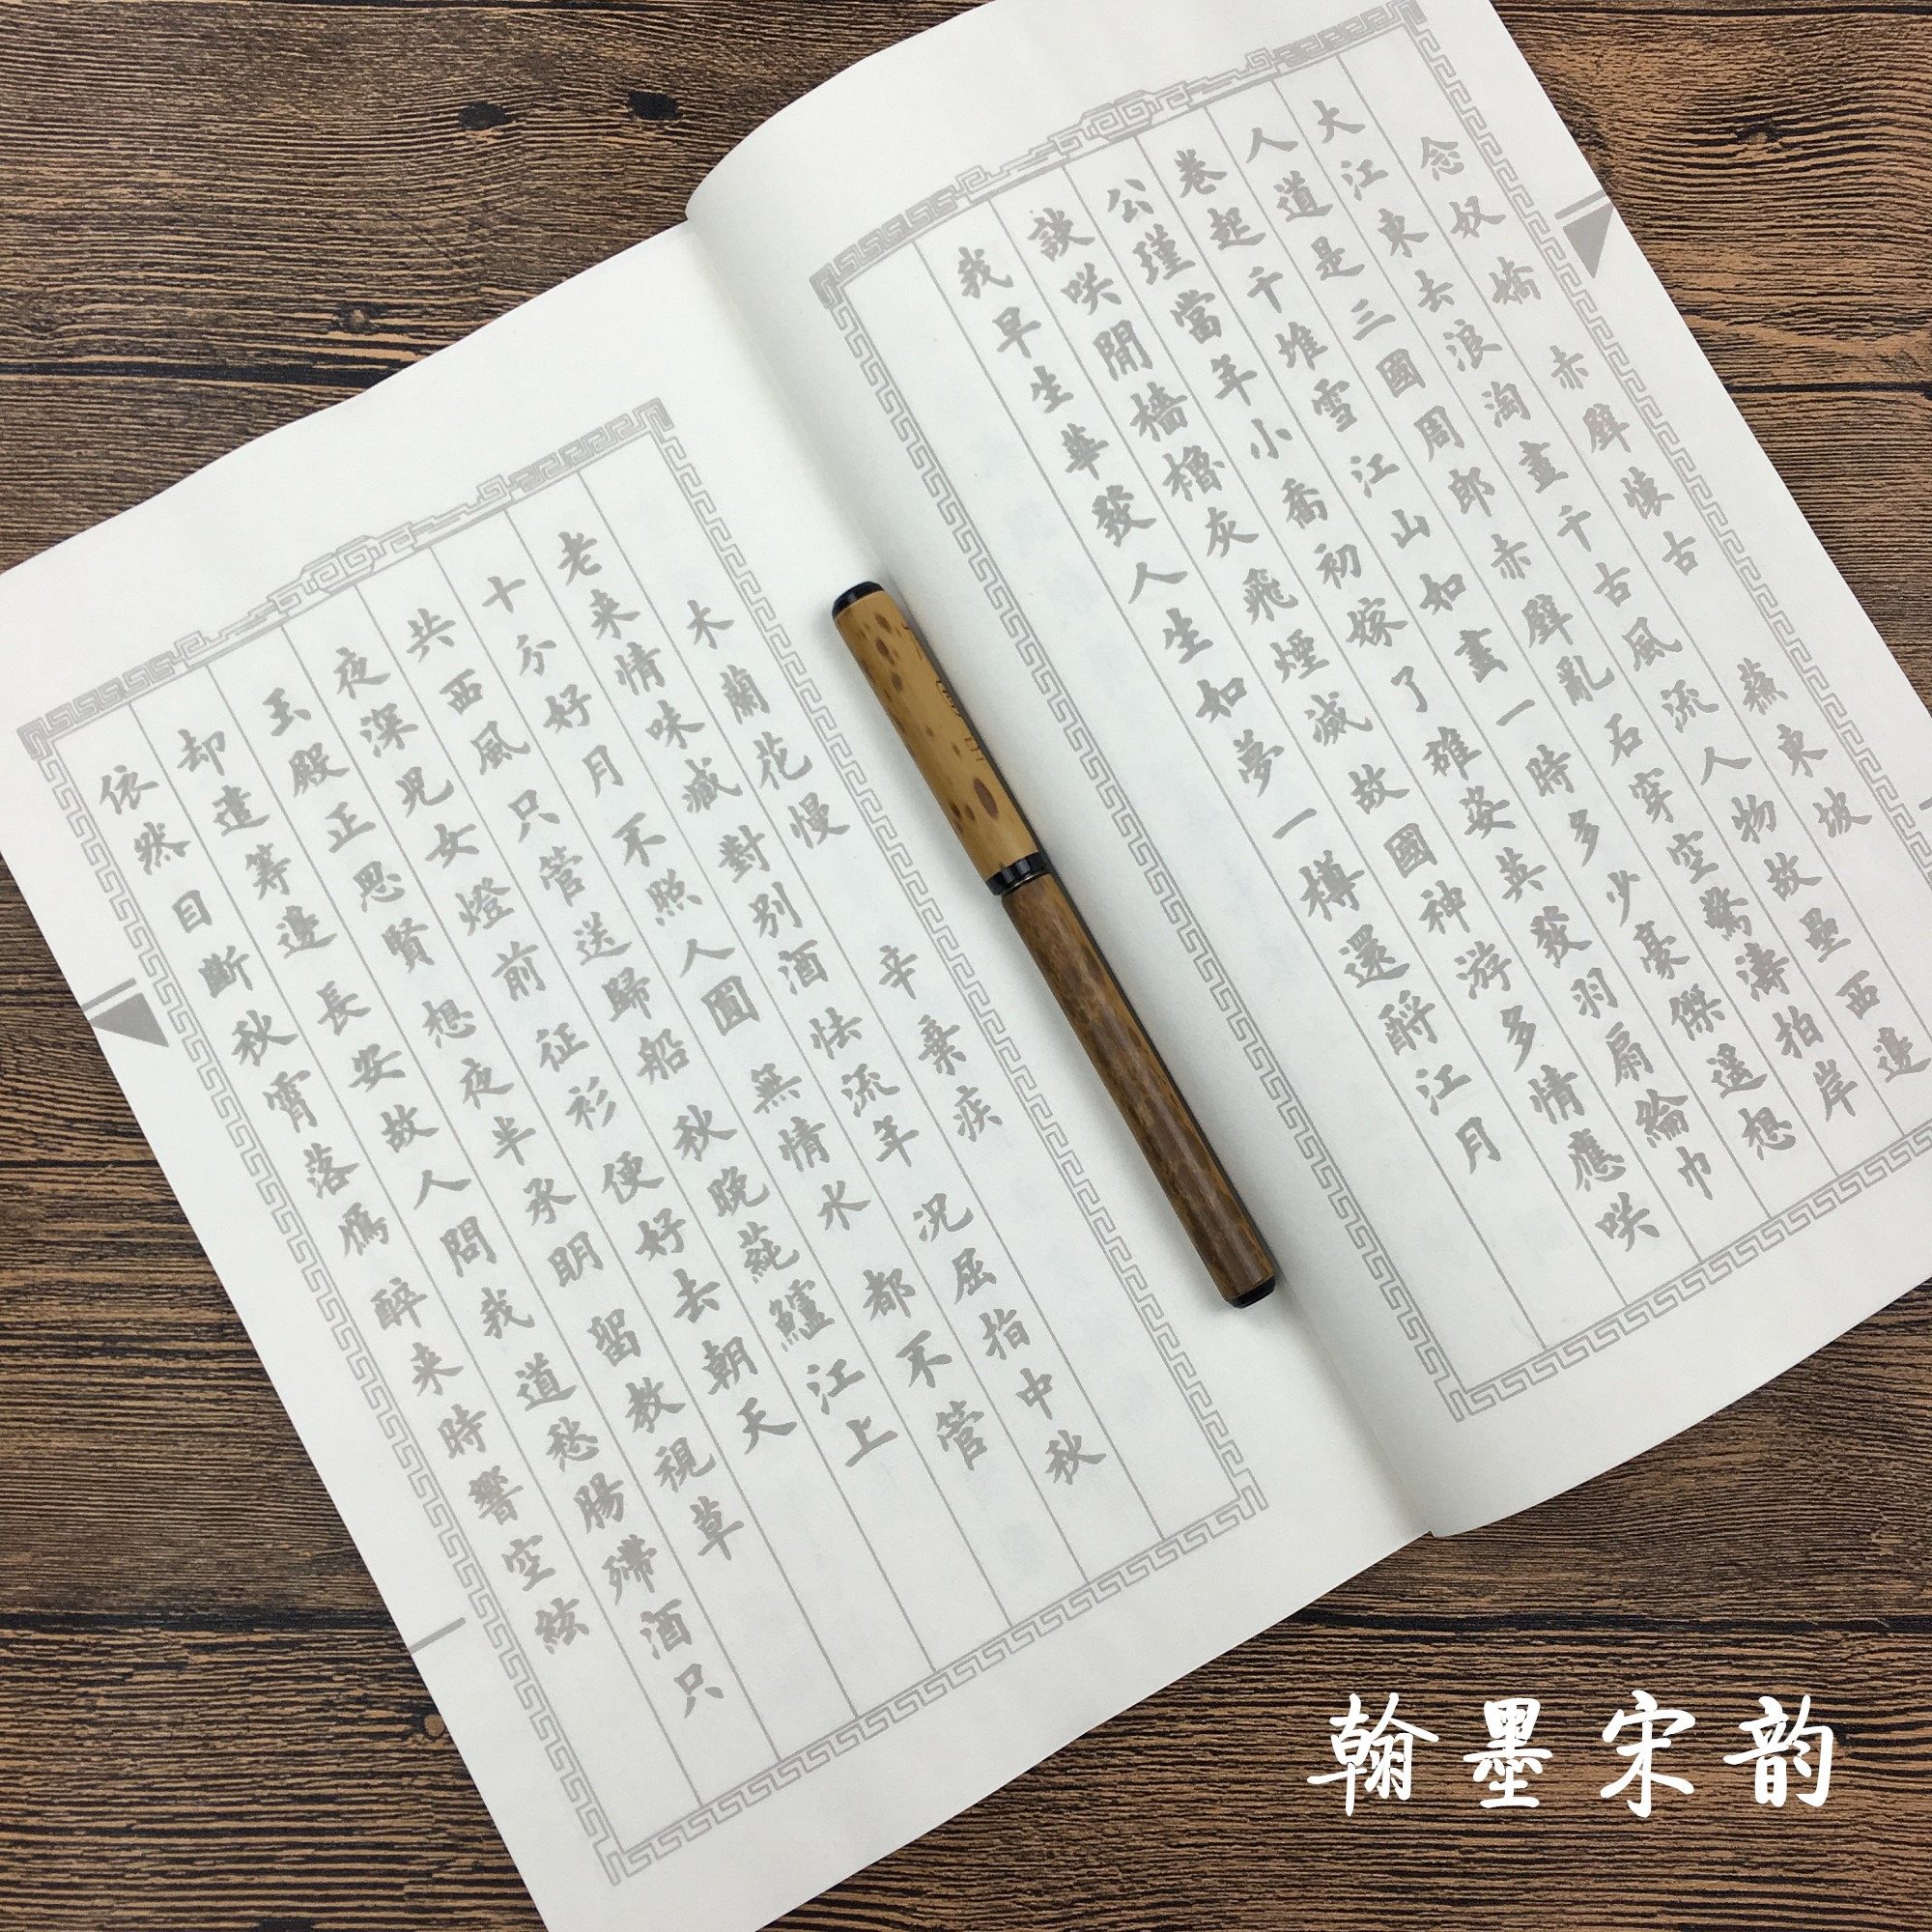 念奴嬌 赤壁懷古 蘇東坡
大江東去浪淘盡千古風流人物故壘西邊
人道是三國周郎赤壁亂石穿空驚濤拍岸
卷起千堆雪江山如畫一時多少豪傑遥想
公瑾當年小喬初嫁了雄姿英發羽扇綸巾
談咲閒檣櫓灰飛煙滅故國神游多情應咲
我早生華發人生如夢一樽還酹江月
木蘭花慢 辛棄疾
老来情味減對别酒怯流年 况屈指中秋
十分好月不照人圓 無情水 都不管
共西風只管送歸船 秋晚蒓鱸江上
夜深兒女燈前 征衫便好去朝天
玉殿正思賢 想夜半承明 留教視草
却遣筹邊 長安故人問我 道愁腸殢酒只
依然目斷秋霄落鴈 醉来時響空絃
翰墨宋韵